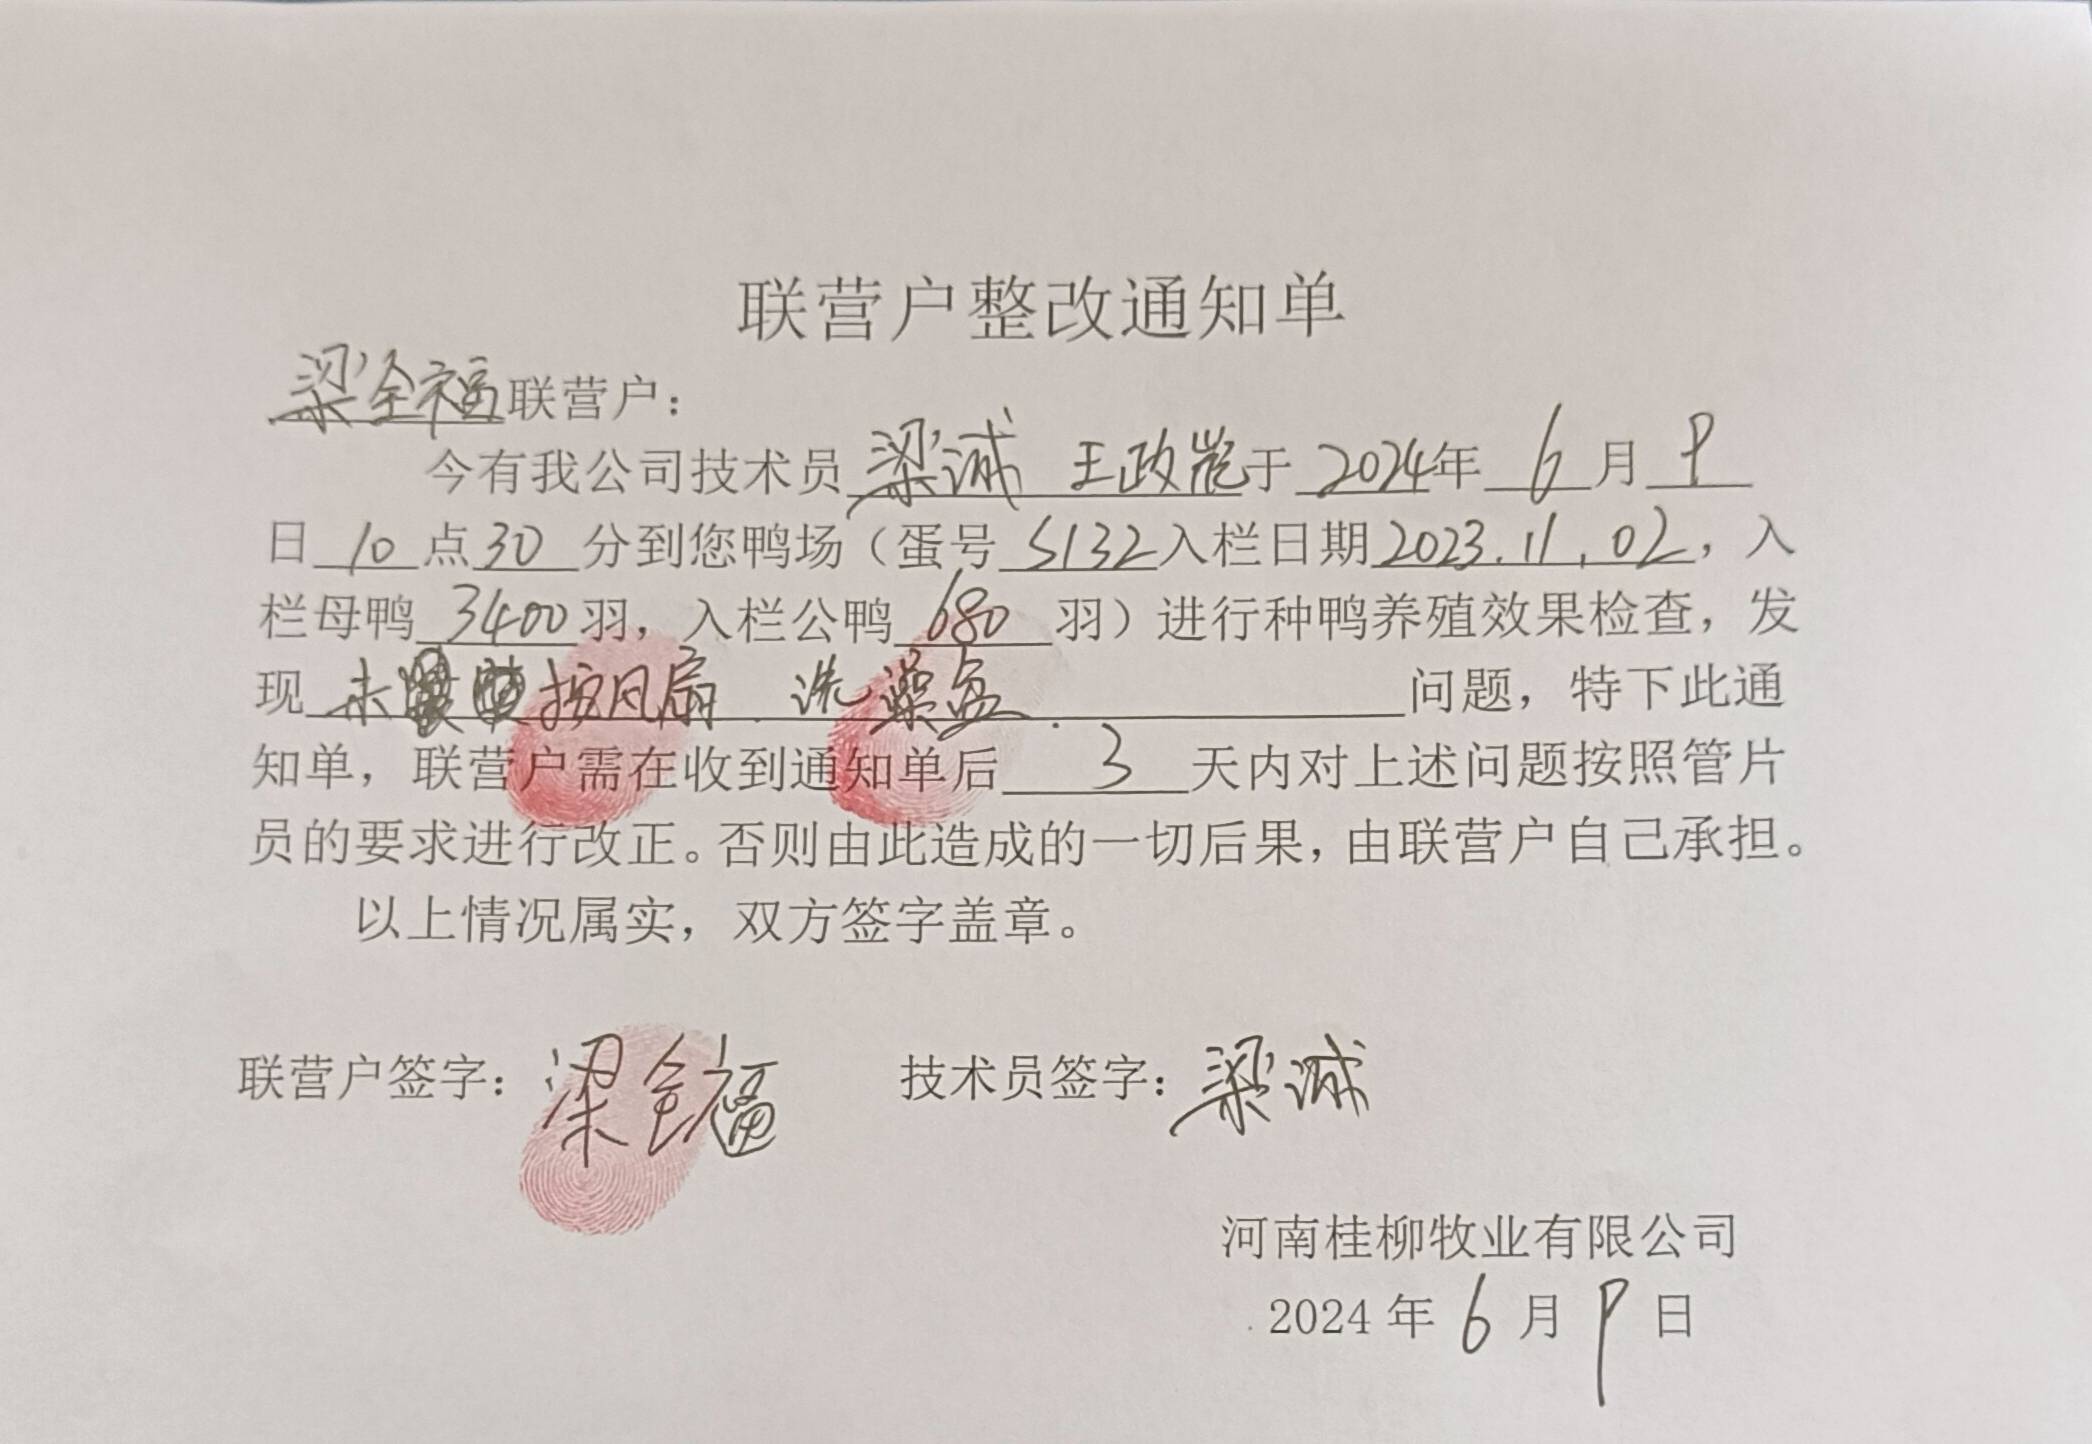 联营户整改通知单
梁全福联营户：
今有我公司技术员梁诚 王政 于2024年6月9
日10点30分到您鸭场（蛋号S132入栏日期2023.11.02，入
栏母鸭3400羽，入栏公鸭680羽）进行种鸭养殖效果检查，发
现未按风扇.洗澡盆.问题，特下此通
知单，联营户需在收到通知单后3天内对上述问题按照管片
员的要求进行改正。否则由此造成的一切后果，由联营户自己承担。
以上情况属实，双方签字盖章。
联营户签字：梁全福 技术员签字：梁诚
河南桂柳牧业有限公司
2024年6月9日